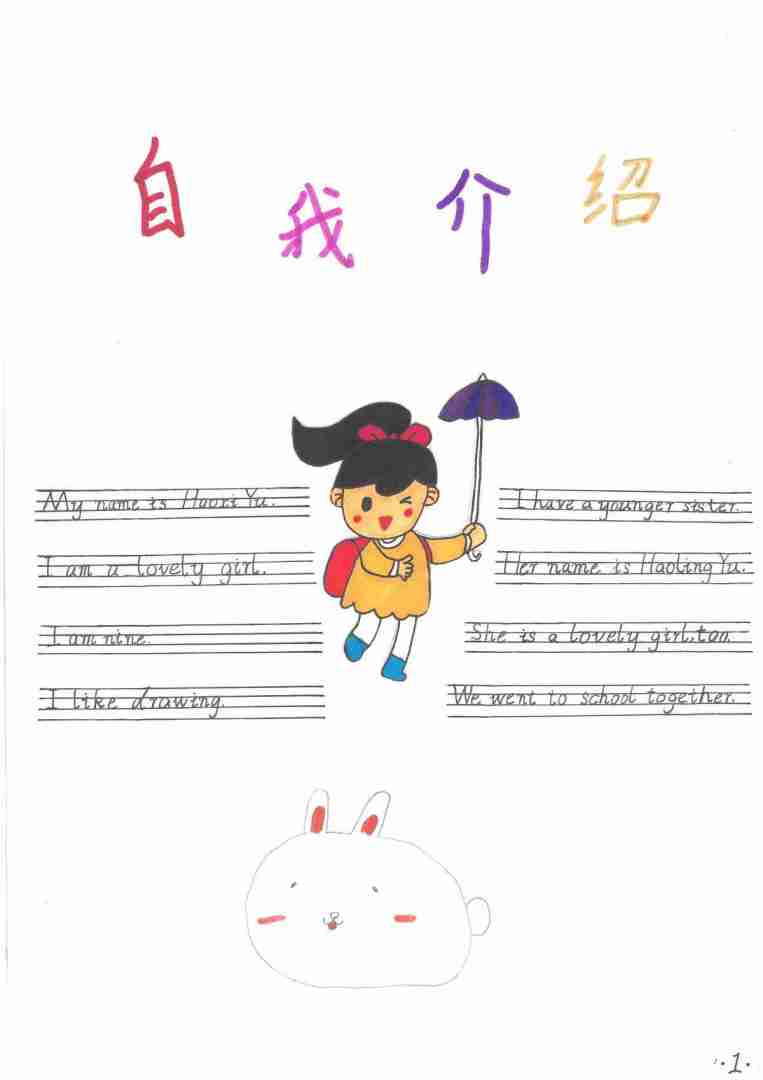 自我介绍
My name is Haoxi Yu.
I am a lovely girl.
I am nine.
I like drawing.
I have a younger sister.
Her name is Haoling Yu.
She is a lovely girl, too.
We went to school together.
·1·